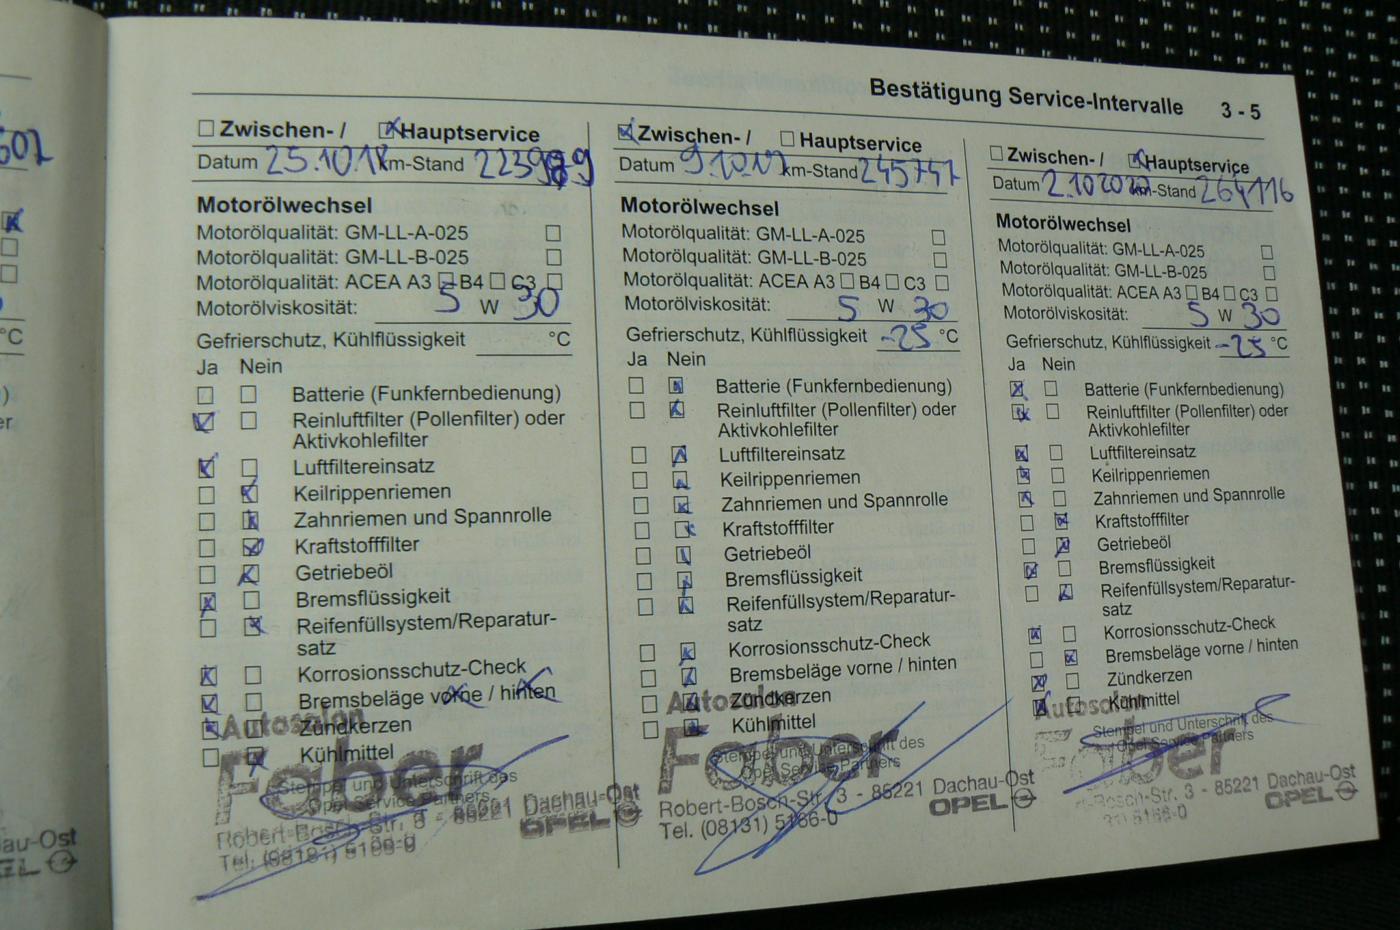 Bestätigung Service-Intervalle 3 - 5
Zwischen- / Hauptservice
Datum 25.10.18 km-Stand
Motorölwechsel
Motorölqualität: GM-LL-A-025
Motorölqualität: GM-LL-B-025
Motorölqualität: ACEA A3 B4 C3
Motorölviskosität: 5 W 30
Gefrierschutz, Kühlflüssigkeit °C
Ja Nein
Batterie (Funkfernbedienung)
Reinluftfilter (Pollenfilter) oder
Aktivkohlefilter
Luftfiltereinsatz
Keilrippenriemen
Zahnriemen und Spannrolle
Kraftstofffilter
Getriebeöl
Bremsflüssigkeit
Reifenfüllsystem/Reparatur-
satz
Korrosionsschutz-Check
Bremsbeläge vorne / hinten
Zündkerzen
Kühlmittel
Autosalon
Faber
Stempel und Unterschrift des
Opel Service Partners
Robert-Bosch-Str. 3 - 85221 Dachau-Ost
Tel. (08131) 5166-0 OPEL
Zwischen- / Hauptservice
Datum 9.10.19 km-Stand 245747
Motorölwechsel
Motorölqualität: GM-LL-A-025
Motorölqualität: GM-LL-B-025
Motorölqualität: ACEA A3 B4 C3
Motorölviskosität: 5 W 30
Gefrierschutz, Kühlflüssigkeit -25 °C
Ja Nein
Batterie (Funkfernbedienung)
Reinluftfilter (Pollenfilter) oder
Aktivkohlefilter
Luftfiltereinsatz
Keilrippenriemen
Zahnriemen und Spannrolle
Kraftstofffilter
Getriebeöl
Bremsflüssigkeit
Reifenfüllsystem/Reparatur-
satz
Korrosionsschutz-Check
Bremsbeläge vorne / hinten
Zündkerzen
Kühlmittel
Autosalon
Faber
Stempel und Unterschrift des
Opel Service Partners
Robert-Bosch-Str. 3 - 85221 Dachau-Ost
Tel. (08131) 5166-0 OPEL
Zwischen- / Hauptservice
Datum 2.10.2020 km-Stand 264116
Motorölwechsel
Motorölqualität: GM-LL-A-025
Motorölqualität: GM-LL-B-025
Motorölqualität: ACEA A3 B4 C3
Motorölviskosität: 5 W 30
Gefrierschutz, Kühlflüssigkeit -25 °C
Ja Nein
Batterie (Funkfernbedienung)
Reinluftfilter (Pollenfilter) oder
Aktivkohlefilter
Luftfiltereinsatz
Keilrippenriemen
Zahnriemen und Spannrolle
Kraftstofffilter
Getriebeöl
Bremsflüssigkeit
Reifenfüllsystem/Reparatur-
satz
Korrosionsschutz-Check
Bremsbeläge vorne / hinten
Zündkerzen
Kühlmittel
Autosalon
Faber
Stempel und Unterschrift des
Opel Service Partners
-Bosch-Str. 3 - 85221 Dachau-Ost
31) 5166-0 OPEL